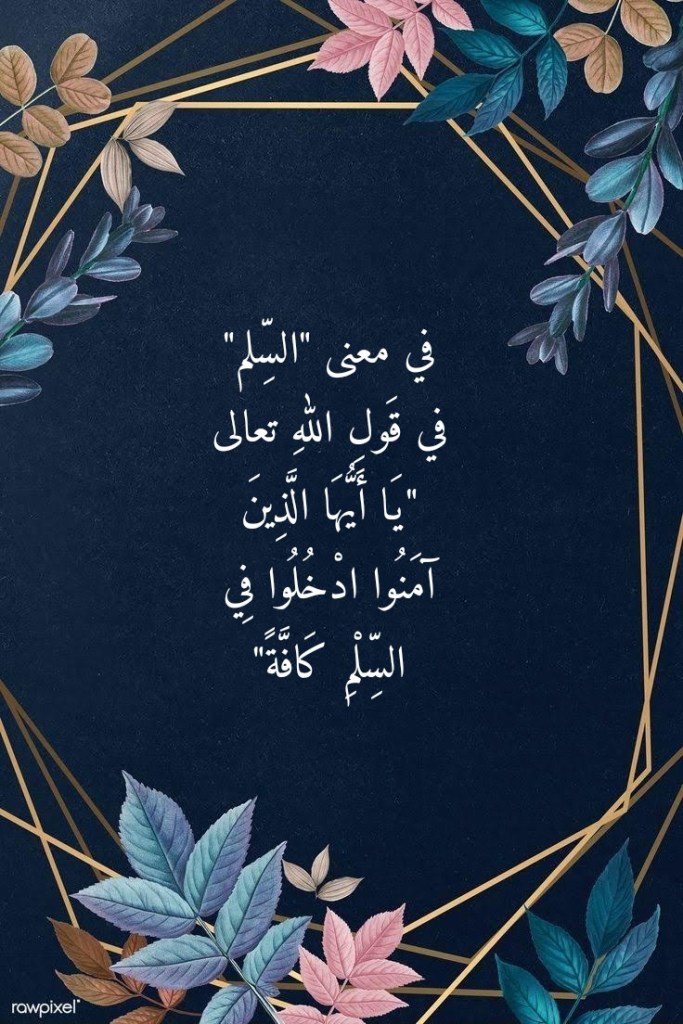 في معنى "السِّلم"
في قَولِ اللهِ تعالى
"يَا أَيُّهَا الَّذِينَ
آمَنُوا ادْخُلُوا فِي
السِّلْمِ كَافَّةً"
rawpixel